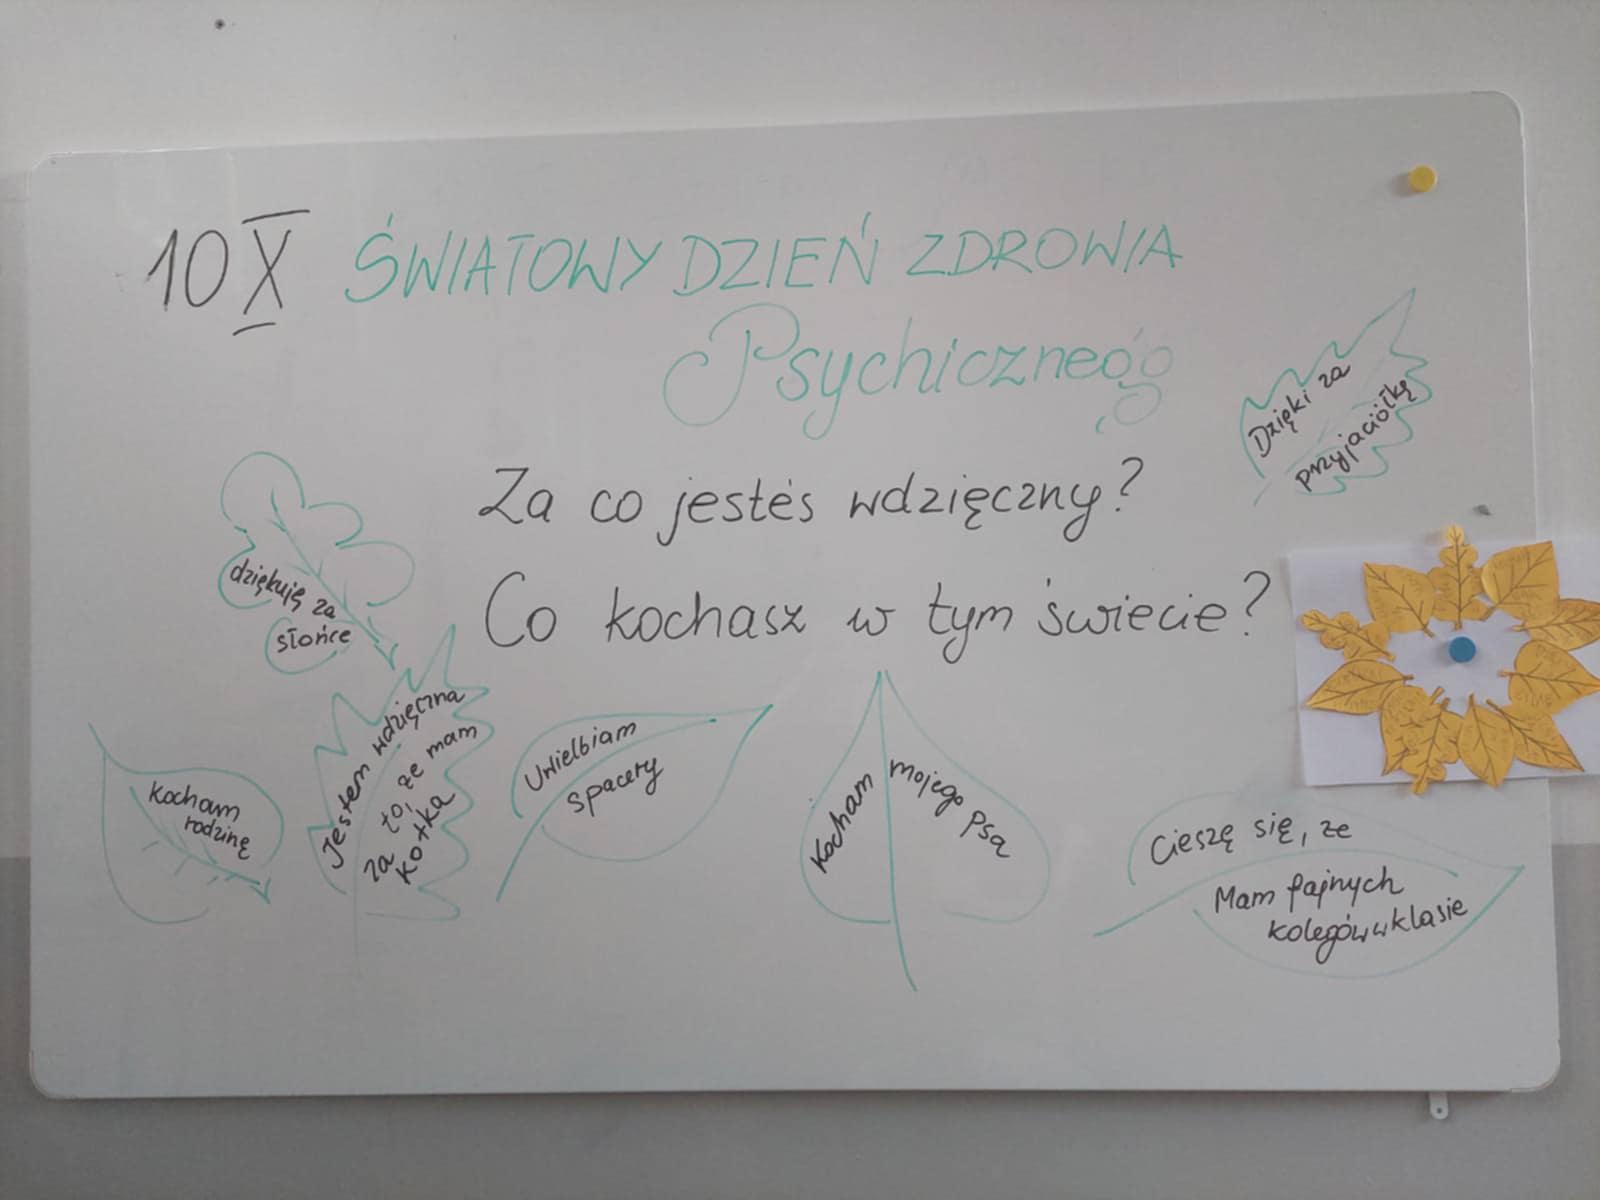 10 X ŚWIATOWY DZIEŃ ZDROWIA
Psychicznego
Za co jesteś wdzięczny?
Co kochasz w tym świecie?
Dzięki za
przyjaciółkę
dziękuję za
słońce
kocham
rodzinę
Jestem wdzięczna
za to, że mam
kotka
Uwielbiam
spacery
Kocham
mojego psa
Cieszę się, że
Mam fajnych
kolegów w klasie